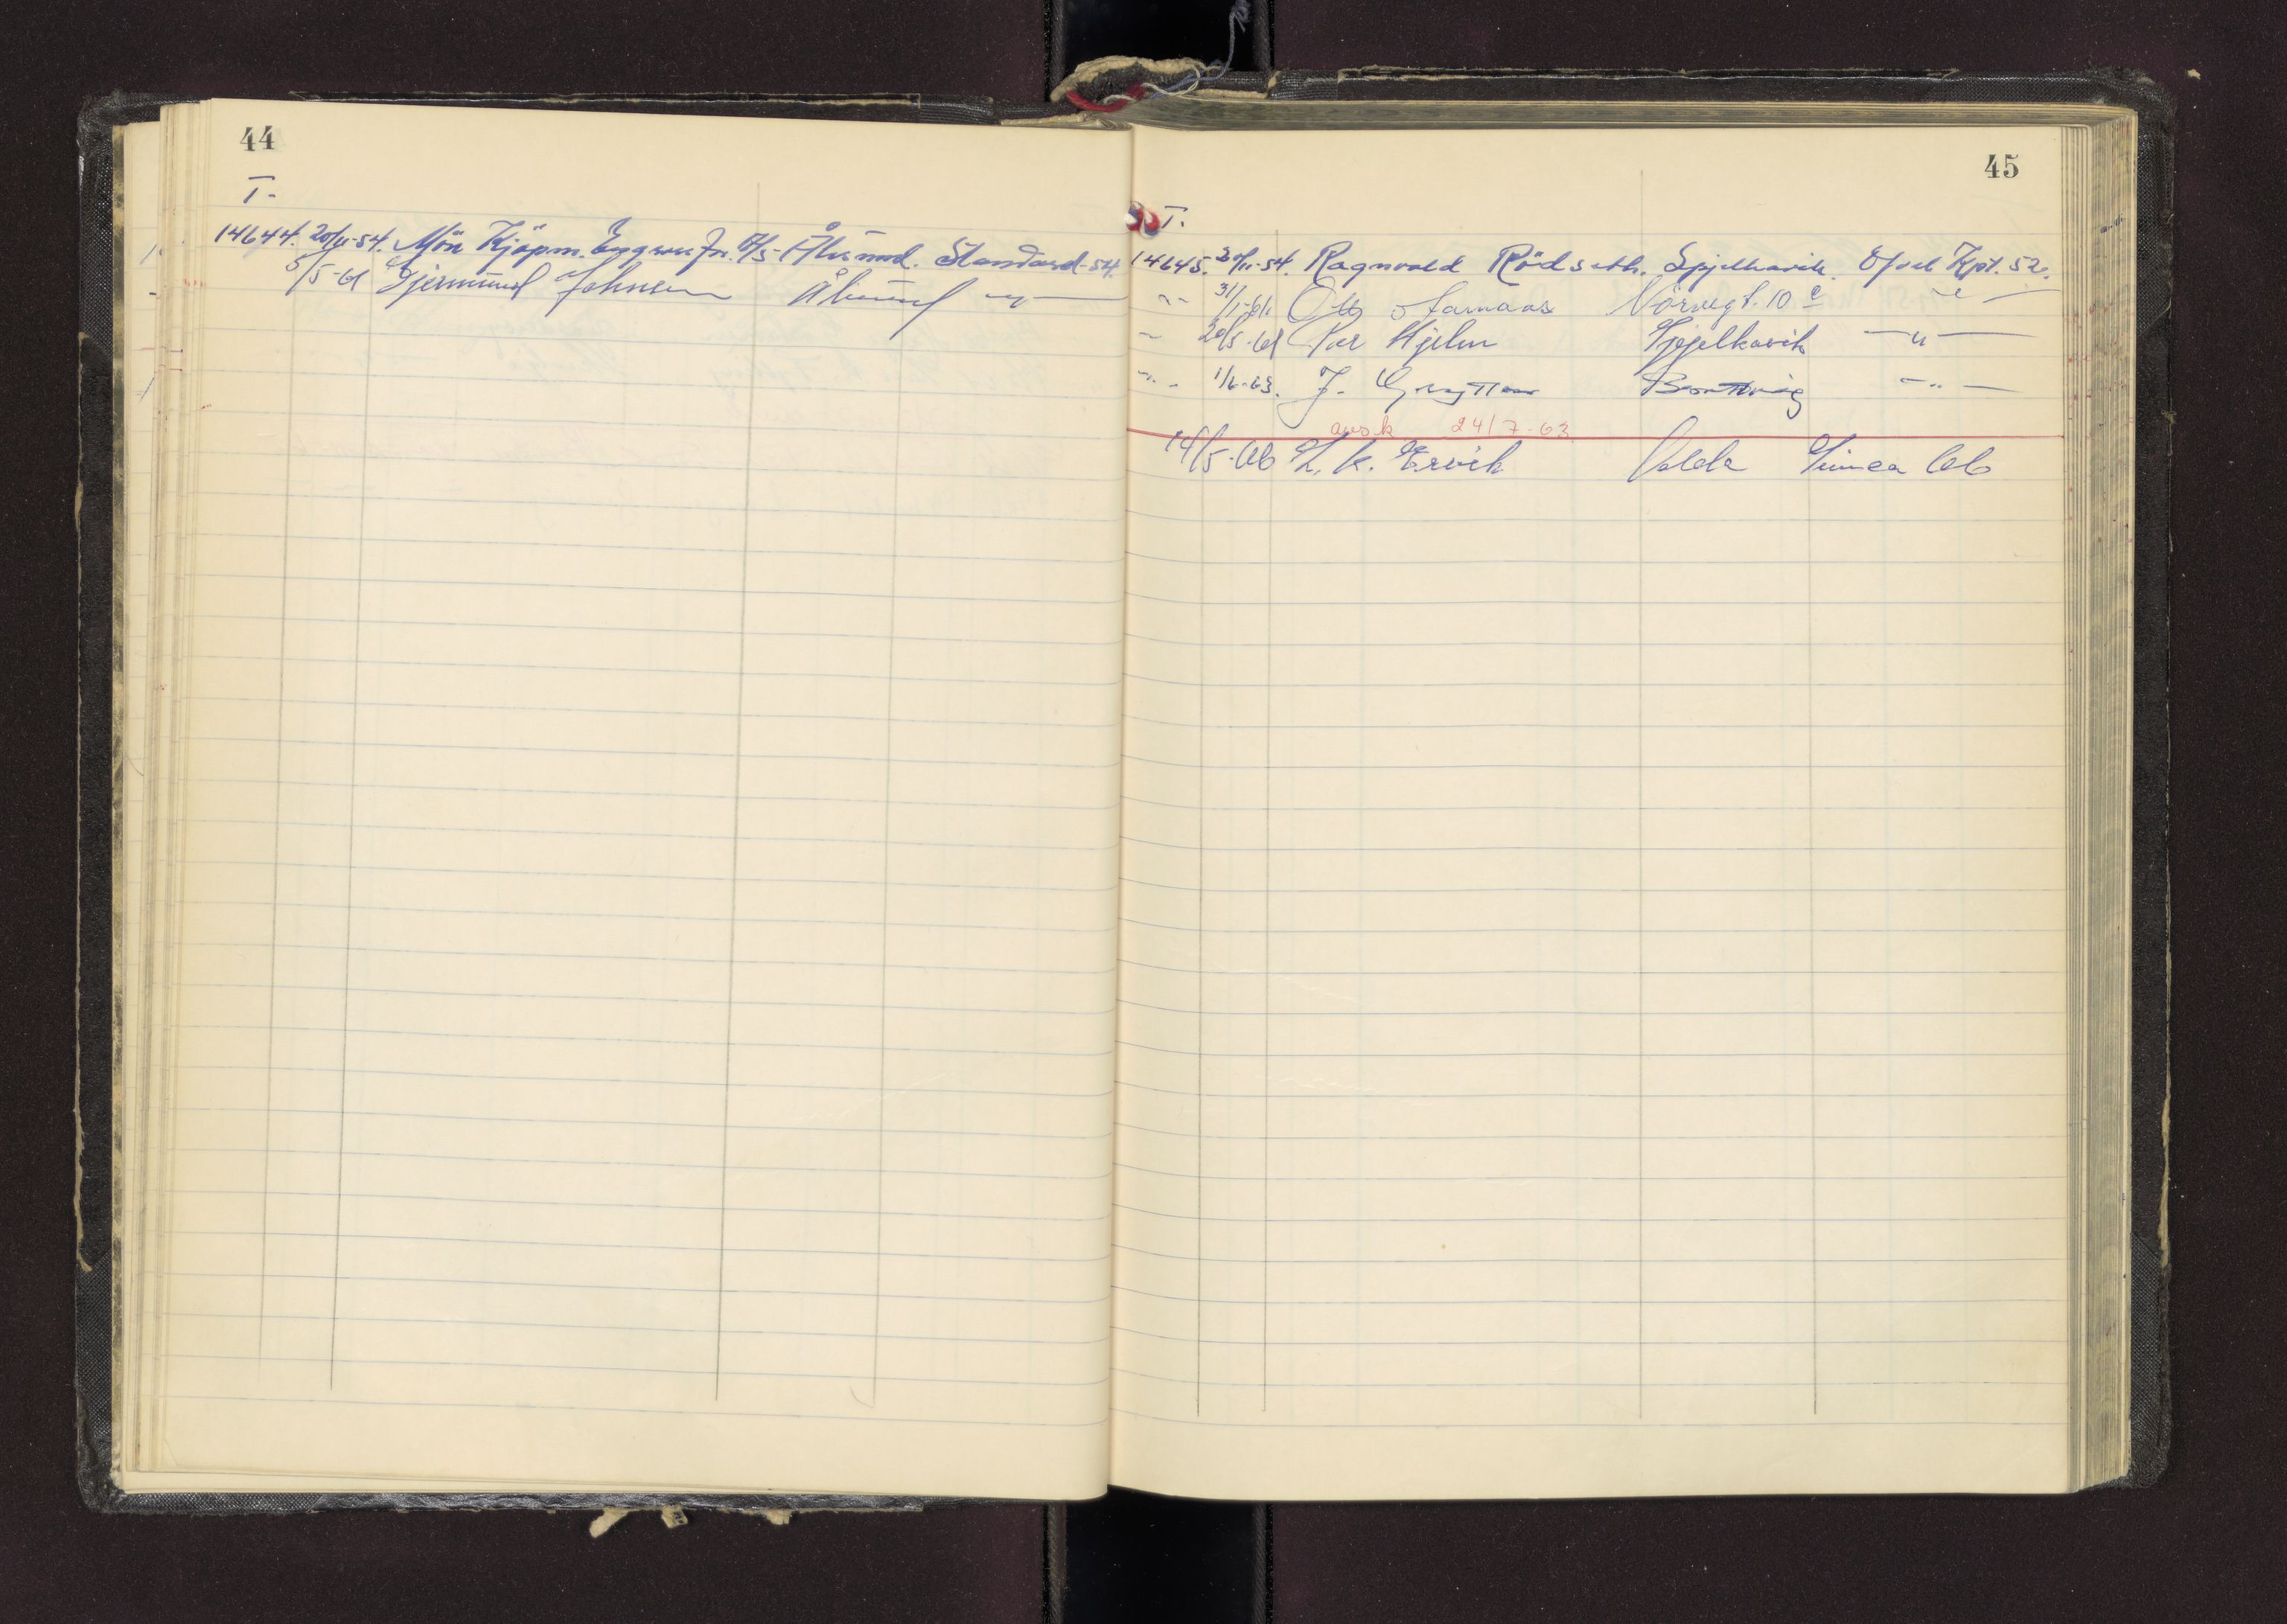 44
T.
14644. 20/11-54. Møre Kjöpm. Engrosfr. A/S Ålesund. Standard-54.
5/5-61 Gjermund Johnsen Ålesund -"-
45
T.
14645. 20/11-54. Ragnvald Rödseth. Spjelkavik. Opel Kpt. 52.
-"- 31/1-61. Otto Aamaas Nörvegt. 10 -"-
-"- 20/5-61 Per Hjelm Spjelkavik -"-
-"- 1/6-63. J. Grytten -"-
avsk 24/7-63
14/5-66 K. Ervik Volda Simca 66